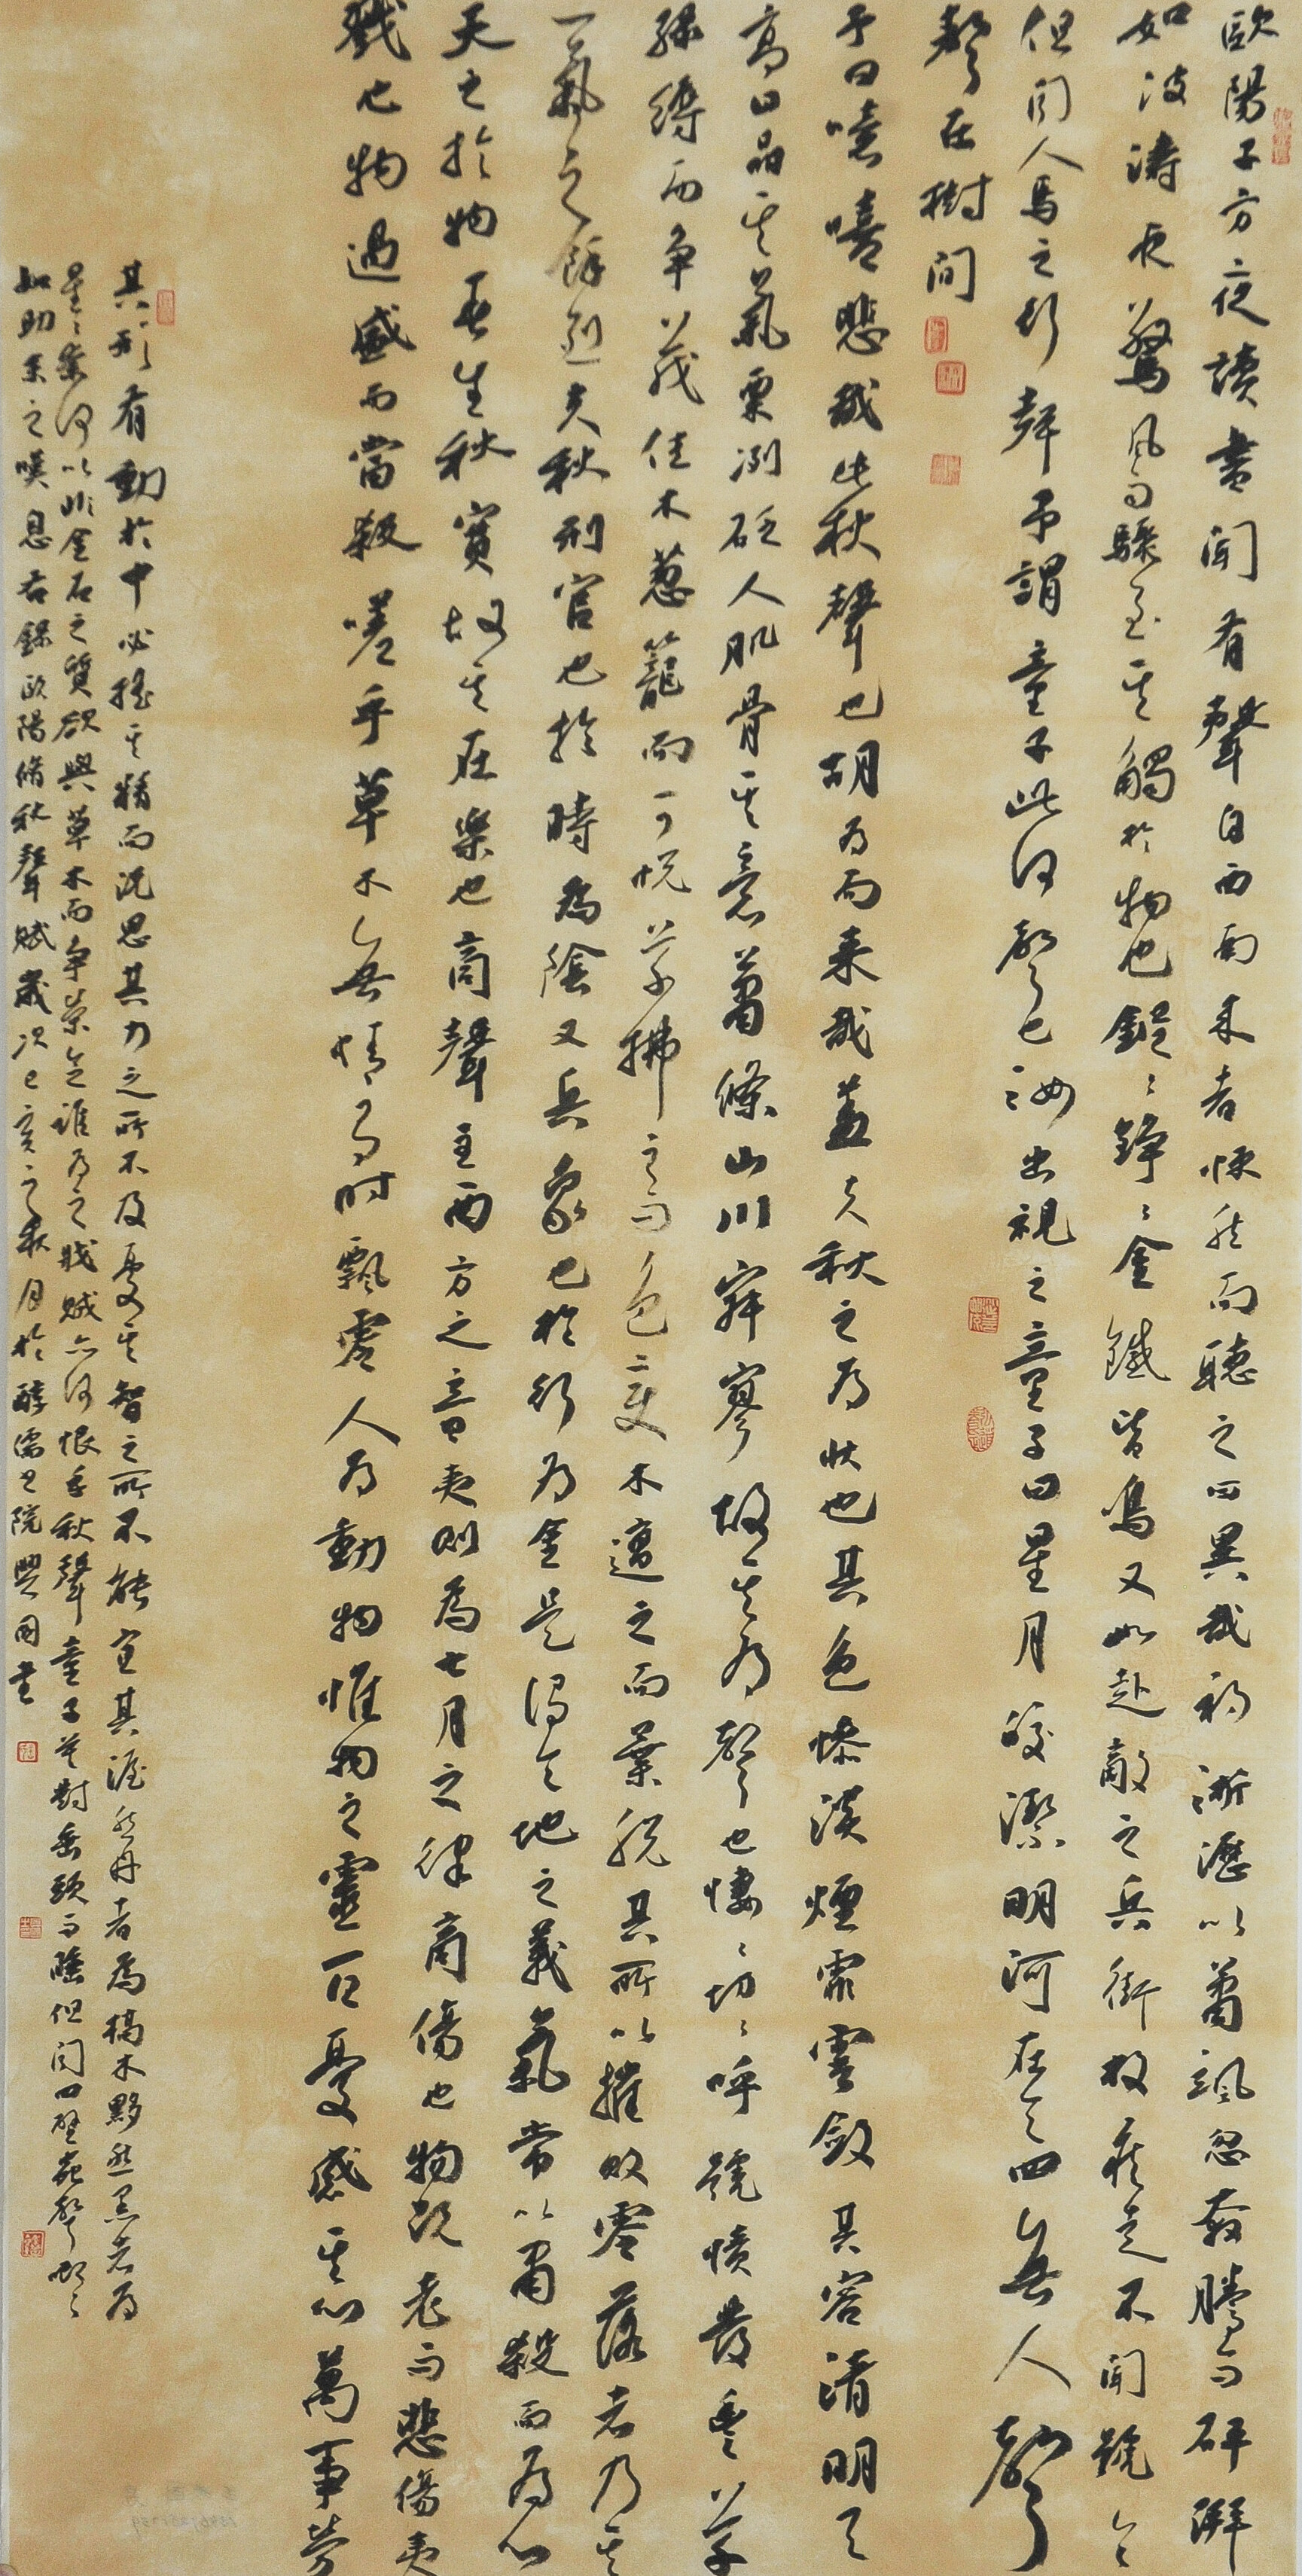 歐陽子方夜讀書聞有聲自西南來者悚然而聽之曰異哉初淅瀝以蕭颯忽奔騰而砰湃
如波濤夜驚風雨驟至其觸於物也鏦々錚々金鐵皆鳴又如赴敵之兵銜枚疾走不聞號令
但聞人馬之行聲予謂童子此何聲也汝出視之童子曰星月皎潔明河在天四無人聲
聲在樹間
予曰噫嘻悲哉此秋聲也胡為而來哉蓋夫秋之為狀也其色慘淡煙霏雲斂其容清明天
高日晶其氣栗冽砭人肌骨其意蕭條山川寂寥故其為聲也悽々切々呼號憤發豐草
綠縟而爭茂佳木蔥籠而可悅草拂之而色變木遭之而葉脫其所以摧敗零落者乃其
一氣之餘烈夫秋刑官也於時為陰又兵象也於行為金是謂天地之義氣常以肅殺而為心
天之於物春生秋實故其在樂也商聲主西方之音夷則為七月之律商傷也物既老而悲傷夷
戮也物過盛而當殺嗟乎草木無情有時飄零人為動物惟物之靈百憂感其心萬事勞
其形有動於中必搖其精而況思其力之所不及憂其智之所不能宜其渥然丹者為槁木黟然黑者為
星々奈何以非金石之質欲與草木而爭榮念誰為之戕賊亦何恨乎秋聲童子莫對垂頭而睡但聞四壁蟲聲唧々
如助余之嘆息右錄歐陽脩秋聲賦歲次己亥之秋月於醉濡書院興國書